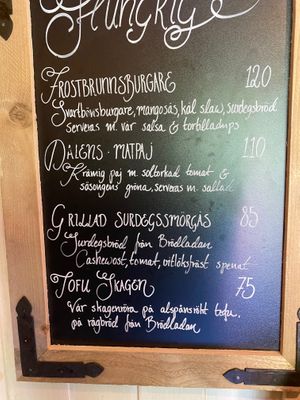 Hungrig?
FROSTBRUNNSBURGARE 120
Svartbönsburgare, mangosås, kål slaw, surdegsbröd
serveras m. vår salsa & tortillachips
DALENS · MATPAJ 110
Krämig paj m. soltorkad tomat &
säsongens gröna, serveras m. sallad
GRILLAD SURDEGSSMÖRGÅS 85
Surdegsbröd från Brödladan
Cashewost, tomat, vitlöksfräst spenat
TOFU SKAGEN 75
Vår skagenröra på alspånsrökt tofu.
på rågbröd från Brödladan